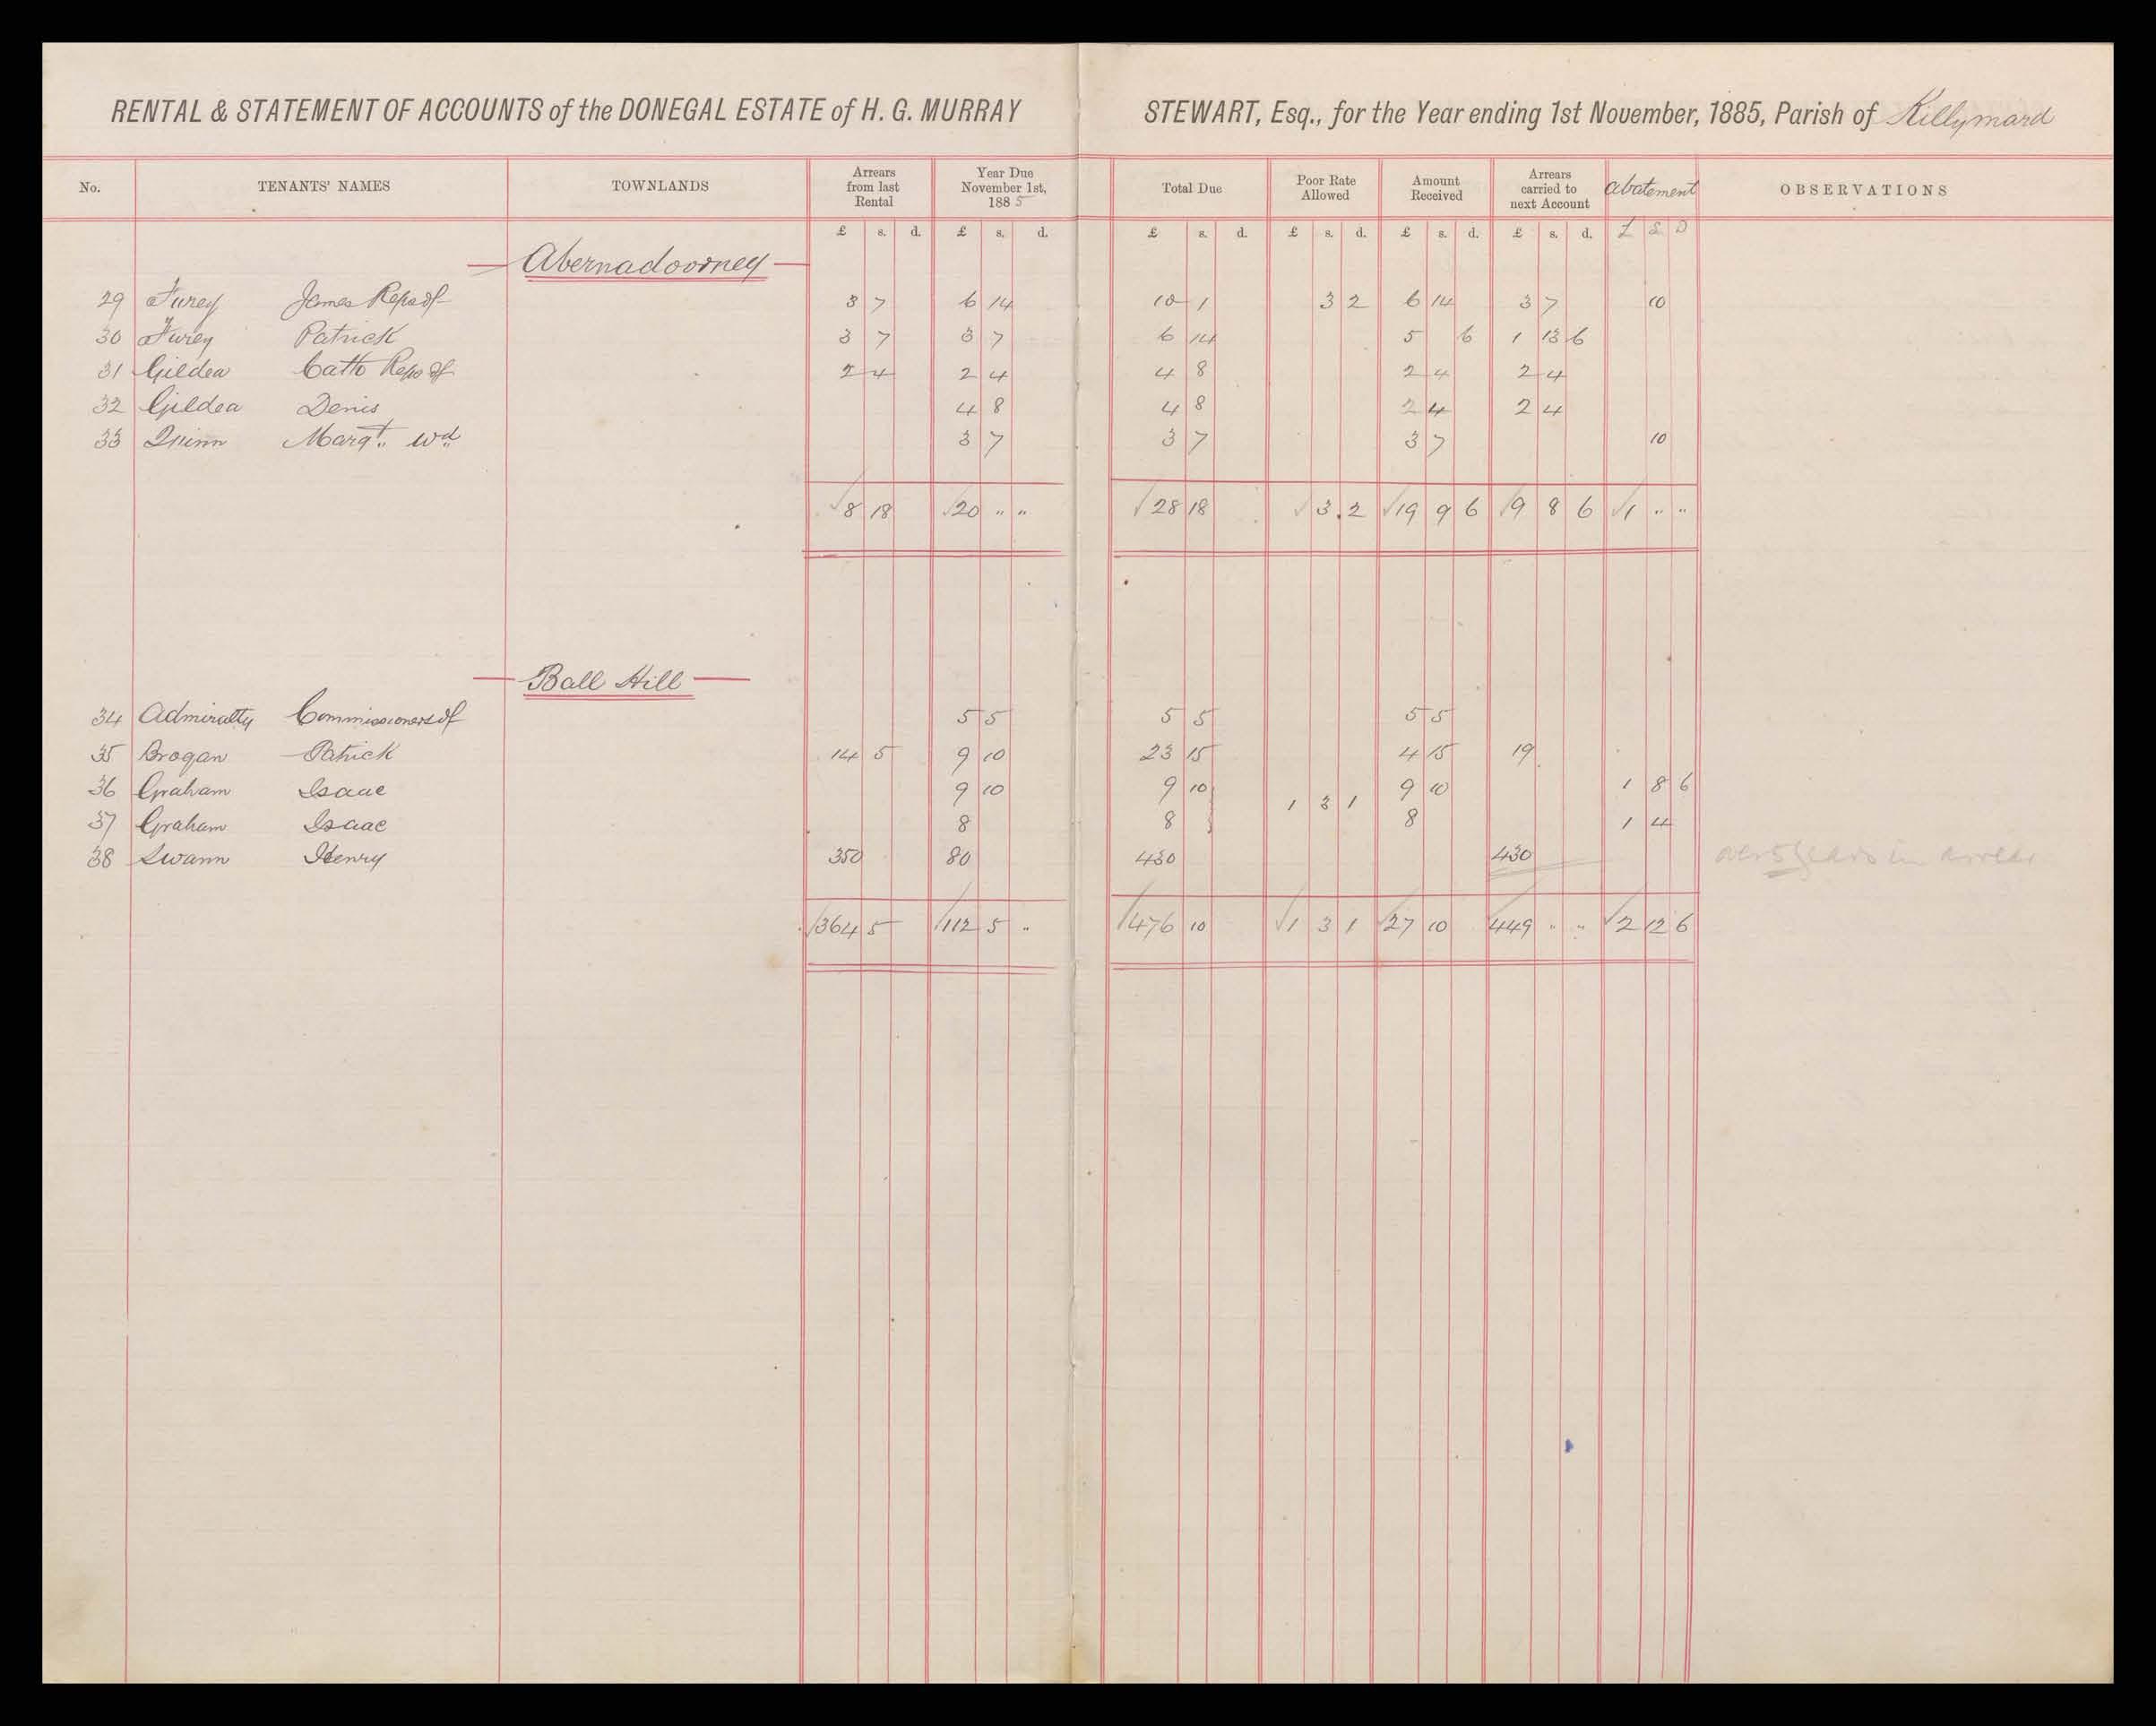 RENTAL & STATEMENT OF ACCOUNTS of the DONEGAL ESTATE of H. G. MURRAY STEWART, Esq., for the Year ending 1st November, 1885, Parish of Killymard
No. TENANTS' NAMES TOWNLANDS Arrears from last Rental Year Due November 1st, 1885 Total Due Poor Rate Allowed Amount Received Arrears carried to next Account Abatement OBSERVATIONS
£ s. d. £ s. d. £ s. d. £ s. d. £ s. d. £ s. d. £ S D
Abernadoorney
29 Furey James Reps of 3 7 6 14 10 1 3 2 6 14 3 7 10
30 Furey Patrick 3 7 3 7 6 14 5 6 1 13 6
31 Gildea Cath Reps of 2 4 2 4 4 8 2 4 2 4
32 Gildea Denis 4 8 4 8 2 4 2 4
33 Quinn Margt. Wd 3 7 3 7 3 7 10
8 18 20 " " 28 18 3.2 19 9 6 9 8 6 1 " "
Ball Hill
34 Admiralty Commissioners of 5 5 5 5 5 5
35 Brogan Patrick 14 5 9 10 23 15 4 15 19
36 Graham Isaac 9 10 9 10 1 3 1 9 10 1 8 6
37 Graham Isaac 8 8 8 1 4
38 Swann Henry 350 80 430 430 over 5 years in arrear
364 5 112 5 " 476 10 1 3 1 27 10 449 " " 2 12 6